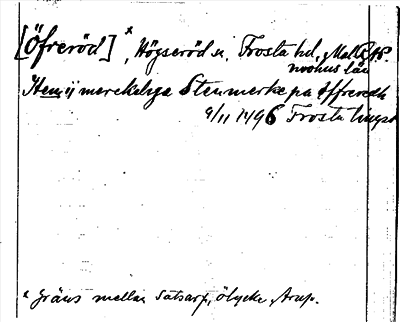 [Öfreröd] x, Högseröd sn, Frosta hd, Malmöhus län
Item ij merckeliga Stenmerke pa Offreredh
9/11 1496 Frosta tingsr
x Gräns mellan Satsarp, Ölycke, Arup.